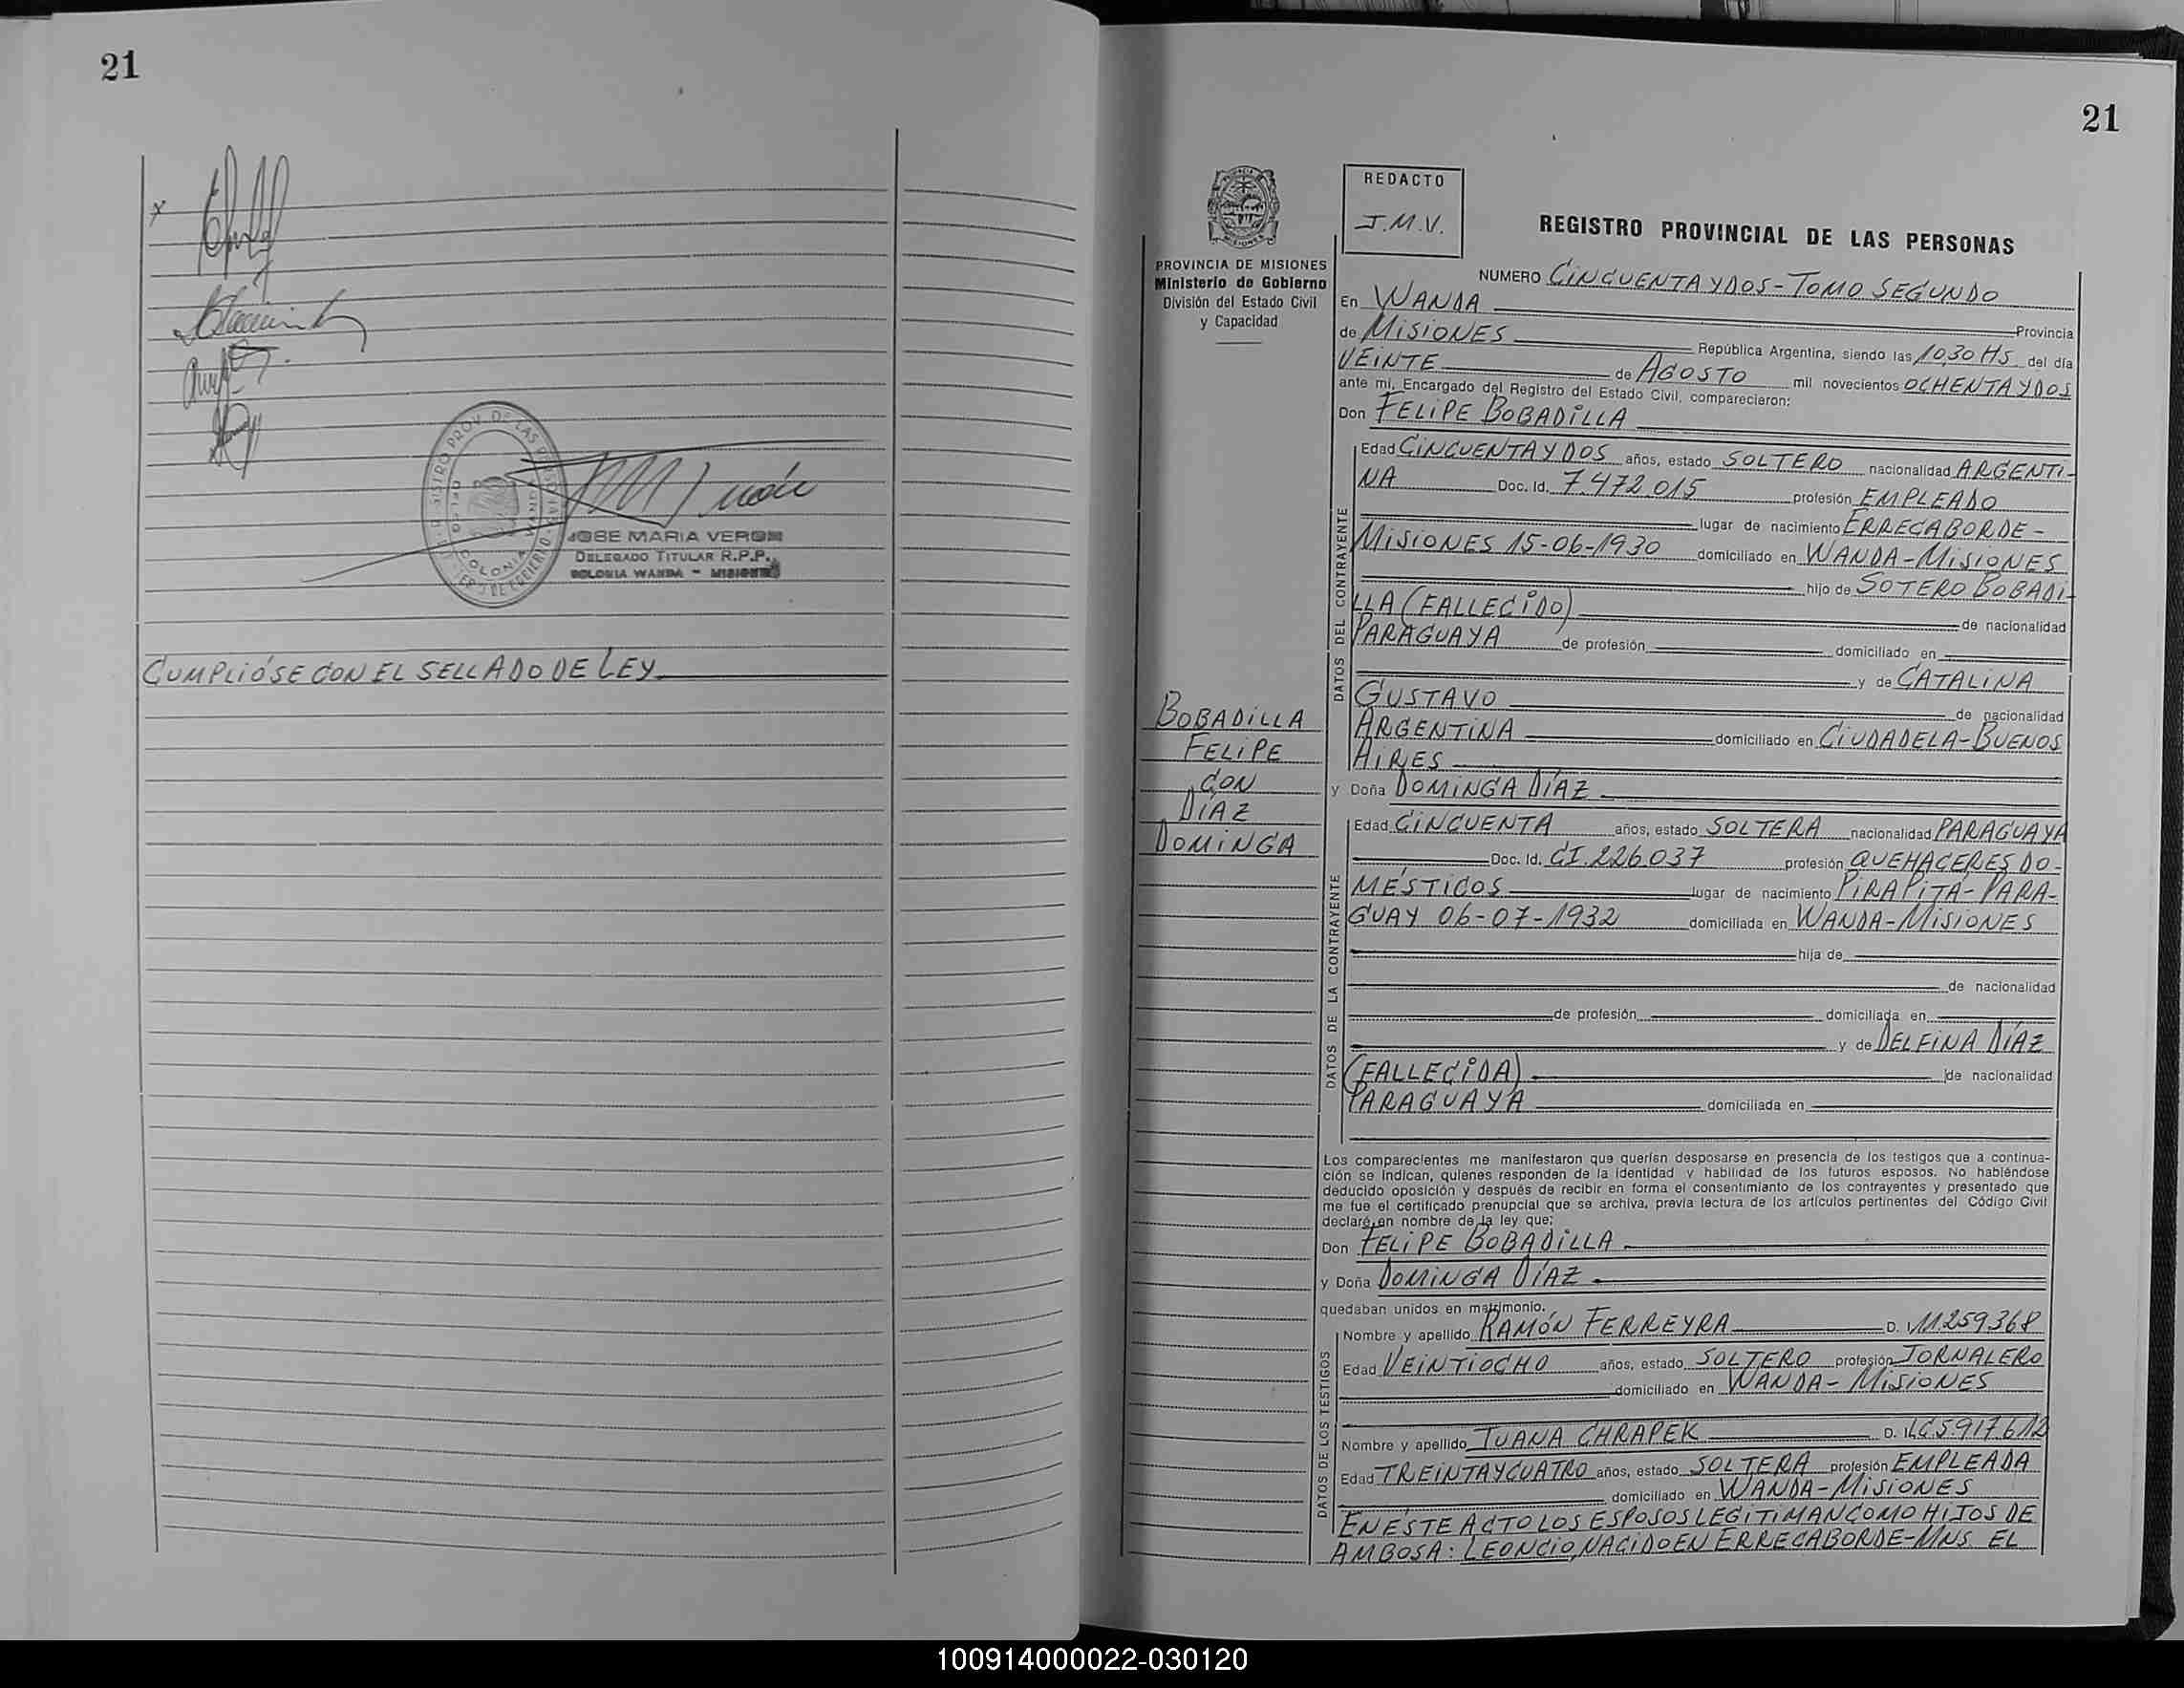 21
CUMPLIÓSE CON EL SELLADO DE LEY
JOSE MARIA VERON
DELEGADO TITULAR R.P.P.
COLONIA WANDA - MISIONES
21
PROVINCIA DE MISIONES
Ministerio de Gobierno
División del Estado Civil
y Capacidad
REDACTO
J.M.V.
REGISTRO PROVINCIAL DE LAS PERSONAS
NUMERO CINCUENTA Y DOS - TOMO SEGUNDO
En WANDA
Provincia
de MISIONES República Argentina, siendo las 10,30 HS del día
VEINTE de AGOSTO mil novecientos OCHENTA Y DOS
ante mi, Encargado del Registro del Estado Civil, comparecieron:
Don FELIPE BOBADILLA
DATOS DEL CONTRAYENTE
Edad CINCUENTA Y DOS años, estado SOLTERO nacionalidad ARGENTI-
NA Doc. Id. 7.472.015 profesión EMPLEADO
lugar de nacimiento ERRECABORDE -
MISIONES 15-06-1930 domiciliado en WANDA - MISIONES
hijo de SOTERO BOBADI-
LLA (FALLECIDO) de nacionalidad
PARAGUAYA de profesión domiciliado en
y de CATALINA
GUSTAVO de nacionalidad
ARGENTINA domiciliado en CIUDADELA - BUENOS
AIRES
BOBADILLA
FELIPE
CON
DÍAZ
DOMINGA
y Doña DOMINGA DÍAZ
DATOS DE LA CONTRAYENTE
Edad CINCUENTA años, estado SOLTERA nacionalidad PARAGUAYA
Doc. Id. CI.226.037 profesión QUEHACERES DO-
MÉSTICOS lugar de nacimiento PIRAPITÁ - PARA-
GUAY 06-07-1932 domiciliada en WANDA - MISIONES
hija de
de nacionalidad
de profesión domiciliada en
y de DELFINA DÍAZ
(FALLECIDA) de nacionalidad
PARAGUAYA domiciliada en
Los comparecientes me manifestaron que querían desposarse en presencia de los testigos que a continua-
ción se indican, quienes responden de la identidad y habilidad de los futuros esposos. No habiéndose
deducido oposición y después de recibir en forma el consentimiento de los contrayentes y presentado que
me fue el certificado prenupcial que se archiva, previa lectura de los artículos pertinentes del Código Civil
declaré en nombre de la ley que:
Don FELIPE BOBADILLA
y Doña DOMINGA DÍAZ
quedaban unidos en matrimonio.
DATOS DE LOS TESTIGOS
Nombre y apellido RAMÓN FERREYRA D. I. 11259368
Edad VEINTIOCHO años, estado SOLTERO profesión JORNALERO
domiciliado en WANDA - MISIONES
Nombre y apellido JUANA CHRAPEK D. I. LC 5.917.612
Edad TREINTA Y CUATRO años, estado SOLTERA profesión EMPLEADA
domiciliado en WANDA - MISIONES
EN ÉSTE ACTO LOS ESPOSOS LEGITIMAN COMO HIJOS DE
AMBOS A: LEONCIO, NACIDO EN ERRECABORDE - MNS. EL
100914000022-030120